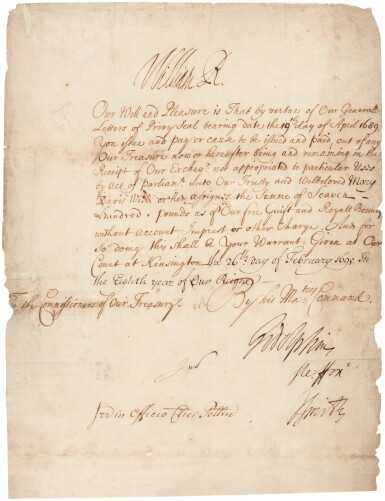 William R
Our Will and Pleasure is That by vertue of Our Generall
Letters of Privy Seal bearing date the 19th day of April 1689
You issue and pay or cause to be issued and paid, out of any
Our Treasure now or hereafter being and remaining in the
Receipt of Our Excheqr not appropriated to particular Uses
by Act of Parliamt unto Our Trusty and Welbeloved Mary
Davis or her assignes the Summe of Seaven
Hundred pounds as Our free Guift and Royall Bounty
without Account Imprest or other Charge And for
So doing this Shall be Your Warrant. Given at Our
Court at Kensington the 26th day of February 1695 In
the Eighth year of Our Reigne
To the Commissioners of Our Treasury By his Mats Command
Godolphin
Ste ffox
JSmith